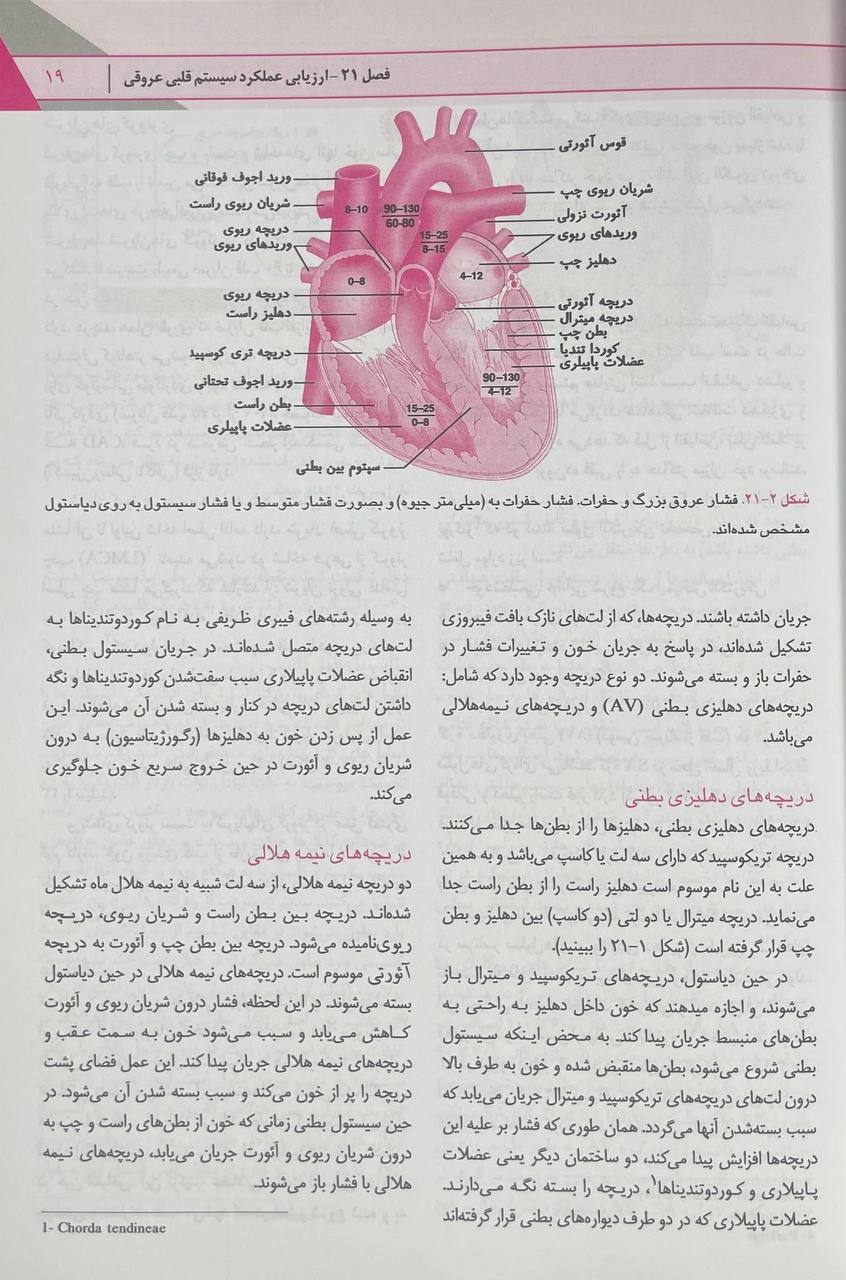 فصل ۲۱ -ارزیابی عملکرد سیستم قلبی عروقی | ۱۹
قوس آئورتی
ورید اجوف فوقانی
شریان ریوی چپ
شریان ریوی راست
آئورت نزولی
دریچه ریوی
وریدهای ریوی
وریدهای ریوی
دهلیز چپ
دریچه ریوی
دریچه آئورتی
دهلیز راست
دریچه میترال
بطن چپ
دریچه تری کوسپید
کوردا تندیا
عضلات پاپیلری
ورید اجوف تحتانی
بطن راست
عضلات پاپیلری
سپتوم بین بطنی
8–10
90–130
60-80
15–25
8–15
0–8
4–12
90–130
4–12
15–25
0–8
شکل ۲-۲۱. فشار عروق بزرگ و حفرات. فشار حفرات به (میلی‌متر جیوه) و بصورت فشار متوسط و یا فشار سیستول به روی دیاستول
مشخص شده‌اند.
جریان داشته باشند. دریچه‌ها، که از لت‌های نازک بافت فیبروزی
تشکیل شده‌اند، در پاسخ به جریان خون و تغییرات فشار در
حفرات باز و بسته می‌شوند. دو نوع دریچه وجود دارد که شامل:
دریچه‌های دهلیزی بطنی (AV) و دریچه‌های نیمه‌هلالی
می‌باشد.
دریچه‌های دهلیزی بطنی
دریچه‌های دهلیزی بطنی، دهلیزها را از بطن‌ها جدا می‌کنند.
دریچه تریکوسپید که دارای سه لت یا کاسپ می‌باشد و به همین
علت به این نام موسوم است دهلیز راست را از بطن راست جدا
می‌نماید. دریچه میترال یا دو لتی (دو کاسپ) بین دهلیز و بطن
چپ قرار گرفته است (شکل ۱-۲۱ را ببینید).
در حین دیاستول، دریچه‌های تریکوسپید و میترال باز
می‌شوند، و اجازه میدهند که خون داخل دهلیز به راحتی به
بطن‌های منبسط جریان پیدا کند. به محض اینکه سیستول
بطنی شروع می‌شود، بطن‌ها منقبض شده و خون به طرف بالا
درون لت‌های دریچه‌های تریکوسپید و میترال جریان می‌یابد که
سبب بسته‌شدن آنها می‌گردد. همان طوری که فشار بر علیه این
دریچه‌ها افزایش پیدا می‌کند، دو ساختمان دیگر یعنی عضلات
پاپیلاری و کوردوتندیناها۱، دریچه را بسته نگه می‌دارند.
عضلات پاپیلاری که در دو طرف دیواره‌های بطنی قرار گرفته‌اند
به وسیله رشته‌های فیبری ظریفی به نام کوردوتندیناها به
لت‌های دریچه متصل شده‌اند. در جریان سیستول بطنی،
انقباض عضلات پاپیلاری سبب سفت‌شدن کوردوتندیناها و نگه
داشتن لت‌های دریچه در کنار و بسته شدن آن می‌شوند. این
عمل از پس زدن خون به دهلیزها (رگورژیتاسیون) به درون
شریان ریوی و آئورت در حین خروج سریع خون جلوگیری
می‌کند.
دریچه‌های نیمه هلالی
دو دریچه نیمه هلالی، از سه لت شبیه به نیمه هلال ماه تشکیل
شده‌اند. دریچه بین بطن راست و شریان ریوی، دریچه
ریوی‌نامیده می‌شود. دریچه بین بطن چپ و آئورت به دریچه
آئورتی موسوم است. دریچه‌های نیمه هلالی در حین دیاستول
بسته می‌شوند. در این لحظه، فشار درون شریان ریوی و آئورت
کاهش می‌یابد و سبب می‌شود خون به سمت عقب و
دریچه‌های نیمه هلالی جریان پیدا کند. این عمل فضای پشت
دریچه را پر از خون می‌کند و سبب بسته شدن آن می‌شود. در
حین سیستول بطنی زمانی که خون از بطن‌های راست و چپ به
درون شریان ریوی و آئورت جریان می‌یابد، دریچه‌های نیمه
هلالی با فشار باز می‌شوند.
1- Chorda tendineae